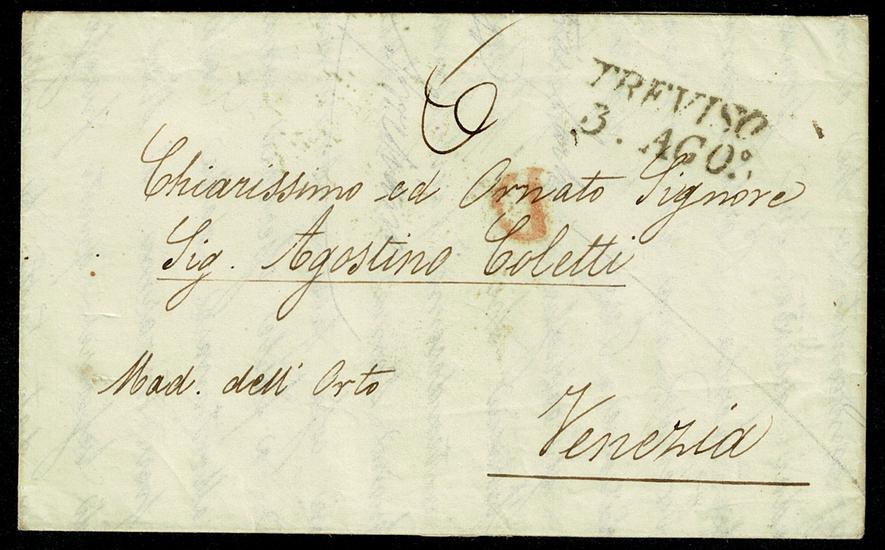 6
TREVISO
3. AGO.
Chiarissimo ed Ornato Signore
Sig. Agostino Coletti
Mad. dell' Orto
Venezia